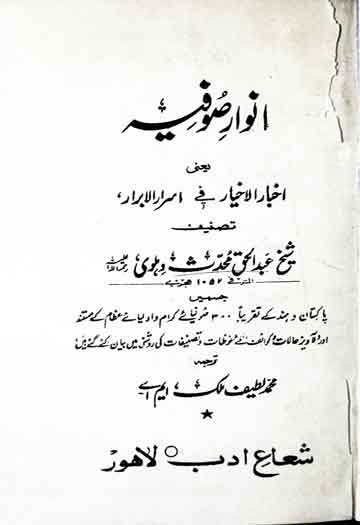 انوارِ صوفیہ
یعنی
اخبار الاخیار فی اسرار الابرار
تصنیف
شیخ عبدالحق محدث دہلوی رحمۃ اللہ علیہ
المتوفی ۱۰۵۲ ہجری
جسمیں
پاکستان و ہند کے تقریباً ۳۰۰ صوفیائے کرام و اولیائے عظام کے مستند
اور آویز حالات و کوائف ملفوظات و تصنیفات کی روشنی میں بیان کئے گئے ہیں
ترجمہ
محمد لطیف ملک ایم اے
شعاعِ ادب لاہور